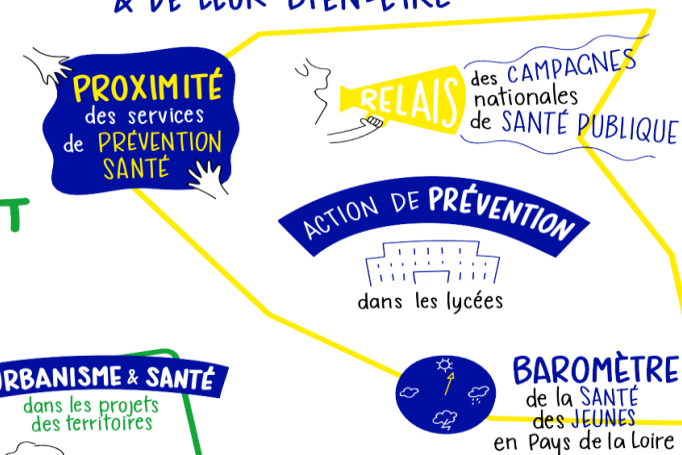 & DE LEUR BIEN-ÊTRE
PROXIMITÉ
des services
de PRÉVENTION
SANTÉ
RELAIS
des CAMPAGNES
nationales
de SANTÉ PUBLIQUE
T
ACTION DE PRÉVENTION
dans les lycées
URBANISME & SANTÉ
dans les projets
des territoires
BAROMÈTRE
de la SANTÉ
des JEUNES
en Pays de la Loire